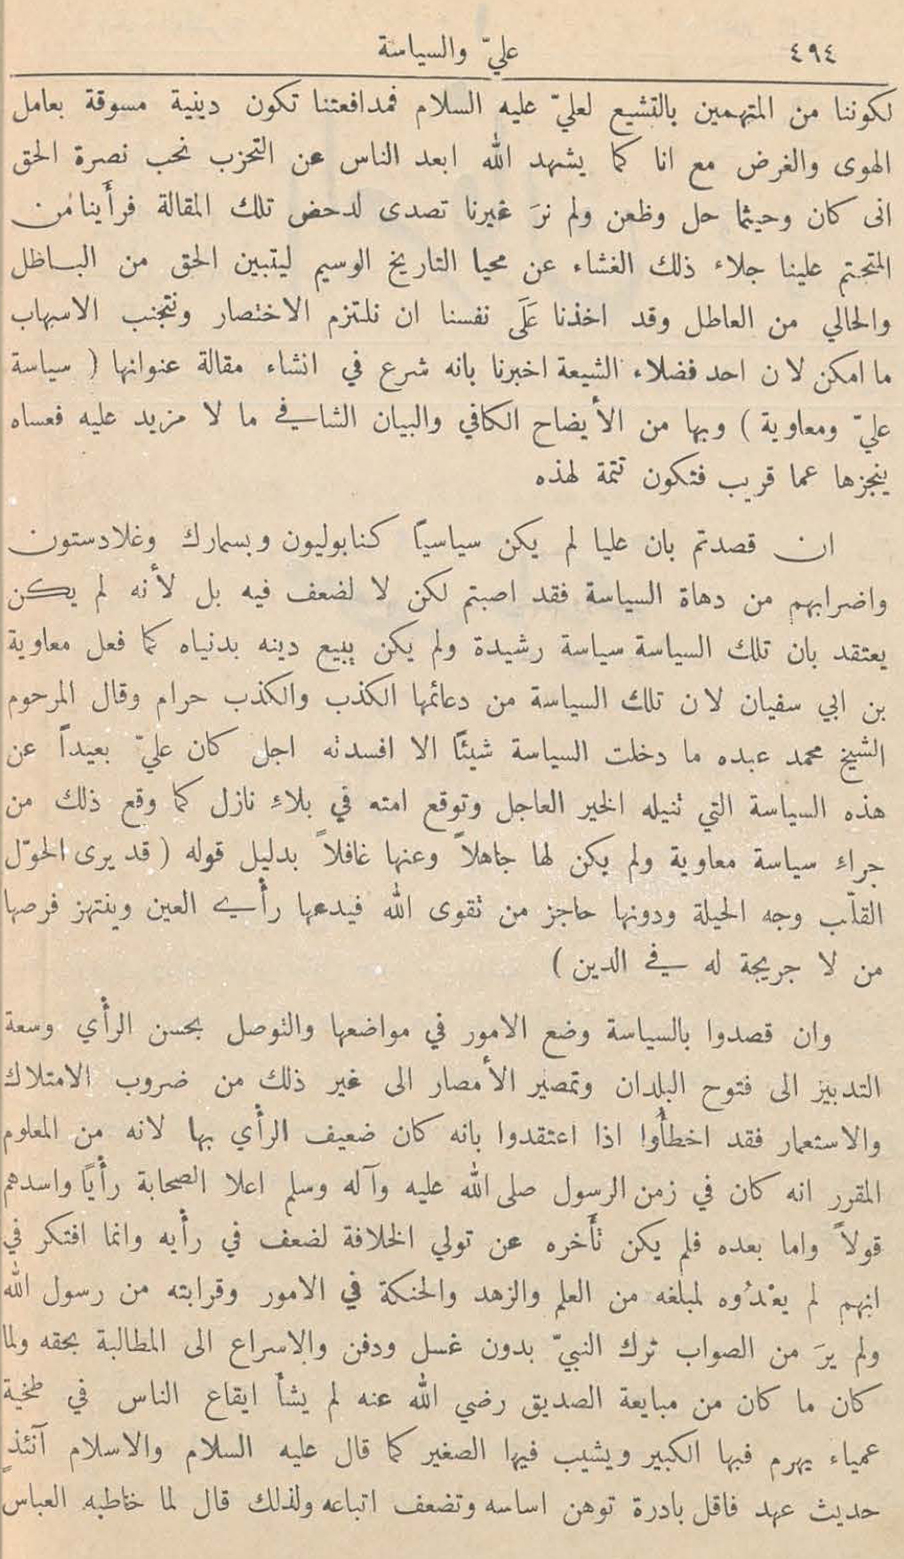 ٤٩٤
عليّ والسياسة
لكوننا من المتهمين بالتشيع لعليّ عليه السلام فمدافعتنا تكون دينية مسوقة بعامل
الهوى والغرض مع انا كما يشهد الله ابعد الناس عن التحزب نحب نصرة الحق
انى كان وحيثما حل وظعن ولم نرَ غيرنا تصدى لدحض تلك المقالة فرأينا من
المتحتم علينا جلاء ذلك الغشاء عن محيا التاريخ الوسيم ليتبين الحق من الباطل
والحالي من العاطل وقد اخذنا عَلَى نفسنا ان نلتزم الاختصار ونتجنب الاسهاب
ما امكن لان احد فضلاء الشيعة اخبرنا بانه شرع في انشاء مقالة عنوانها ( سياسة
عليّ ومعاوية ) وبها من الأيضاح الكافي والبيان الشافي ما لا مزيد عليه فعساه
ينجزها عما قريب فتكون تتمة لهذه
ان قصدتم بان عليا لم يكن سياسياً كنابوليون وبسمارك وغلادستون
واضرابهم من دهاة السياسة فقد اصبتم لكن لا لضعف فيه بل لأنه لم يكن
يعتقد بان تلك السياسة سياسة رشيدة ولم يكن يبيع دينه بدنياه كما فعل معاوية
بن ابي سفيان لان تلك السياسة من دعائمها الكذب والكذب حرام وقال المرحوم
الشيخ محمد عبده ما دخلت السياسة شيئاً الا افسدته اجل كان عليّ بعيداً عن
هذه السياسة التي تنيله الخير العاجل وتوقع امته في بلاءِ نازل كما وقع ذلك من
جراءِ سياسة معاوية ولم يكن لها جاهلاً وعنها غافلاً بدليل قوله ( قد يرى الحوّل
القلّب وجه الحيلة ودونها حاجز من تقوى الله فيدعها رأي العين وينتهز فرصها
من لا جريجة له في الدين )
وان قصدوا بالسياسة وضع الامور في مواضعها والتوصل بحسن الرأي وسعة
التدبيز الى فتوح البلدان وتمصير الأمصار الى غير ذلك من ضروب الامتلاك
والاستعمار فقد اخطأوا اذا اعتقدوا بانه كان ضعيف الرأي بها لانه من المعلوم
المقرر انه كان في زمن الرسول صلى الله عليه وآله وسلم اعلا الصحابة رأياً واسدهم
قولاً واما بعده فلم يكن تأخره عن تولي الخلافة لضعف في رأيه وانما افتكر في
انهم لم يعْدُوه لمبلغه من العلم والزهد والحنكة في الامور وقرابته من رسول الله
ولم يرَ من الصواب ترك النبيّ بدون غسل ودفن والاسراع الى المطالبة بحقه ولما
كان ما كان من مبايعة الصديق رضي الله عنه لم يشأ ايقاع الناس في طخية
عمياء يهرم فيها الكبير ويشيب فيها الصغير كما قال عليه السلام والاسلام آنئذٍ
حديث عهد فاقل بادرة توهن اساسه وتضعف اتباعه ولذلك قال لما خاطبه العباس